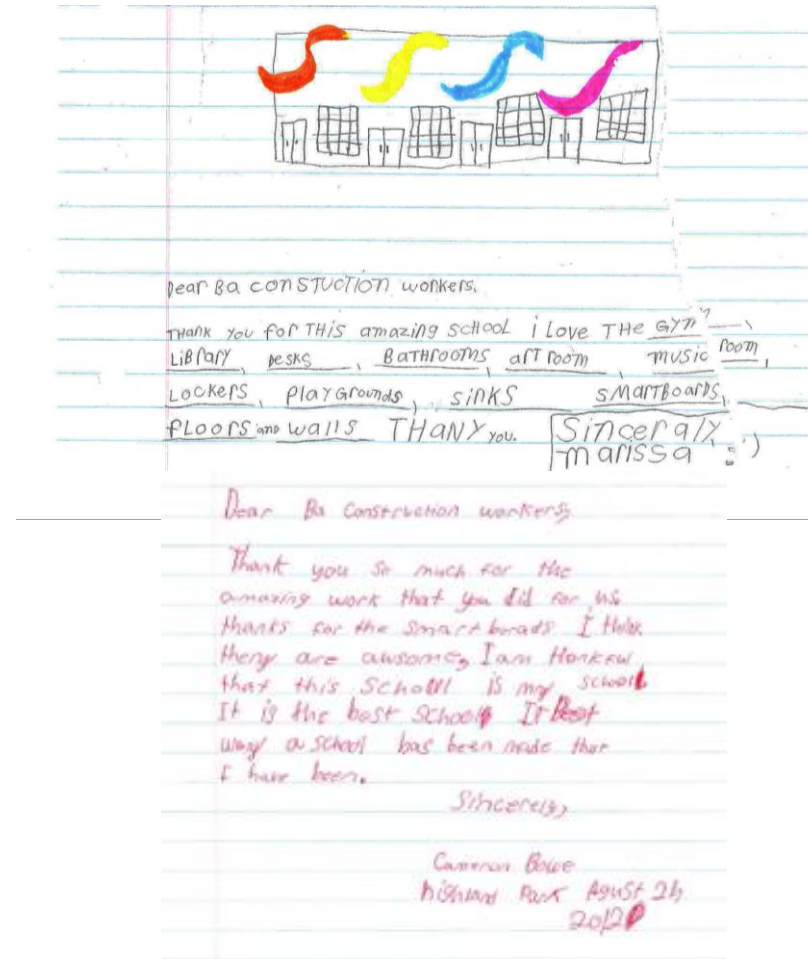 Dear Ba conSTUCTION workers,
THank You for THis amazing scHool i Love THe GYM,
LiBrary, Desks, BaTHrooms, arT room, music room,
Lockers, PlayGrounds, sinks smarTBoarDs,
fLoors and walls THanY you. Sinceraly,
marissa :)
Dear Ba Construction workers,
Thank you so much for the
amazing work that you did for us.
thanks for the smart brads. I think
they are awsome, I am
that this School is my school
It is the best School It Best
way a school has been made that
I have been.
Sincerely,
Cameron Bowe
highland Park Agust 24
2012